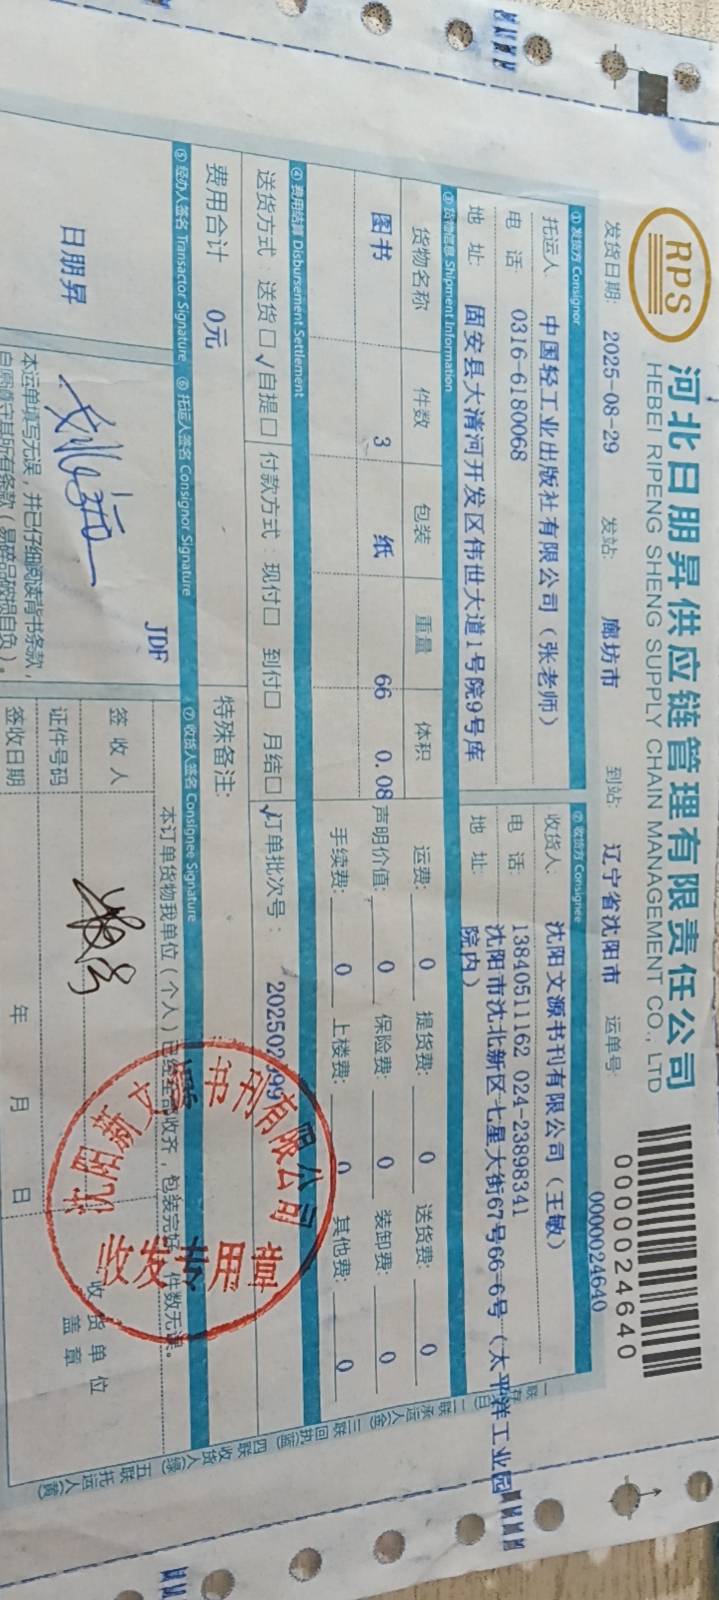 RPS
河北日朋昇供应链管理有限责任公司
HEBEI RIPENG SHENG SUPPLY CHAIN MANAGEMENT CO., LTD
0000024640
发货日期: 2025-08-29 发站: 廊坊市 到站: 辽宁省沈阳市 运单号: 0000024640
① 发货方 Consignor
托运人: 中国轻工业出版社有限公司（张老师）
电 话: 0316-6180068
地 址: 固安县大清河开发区伟世大道1号院9号库
② 收货方 Consignee
收货人: 沈阳文源书刊有限公司（王敏）
电 话: 13840511162 024-23898341
地 址: 沈阳市沈北新区七星大街67号66-6号（太平洋工业园
院内）
③ 货物信息 Shipment Information
货物名称 件数 包装 重量 体积
图书 3 纸 66 0.08
运费: 0 提货费: 0 送货费: 0
声明价值: 0 保险费: 0 装卸费: 0
手续费: 0 上楼费: 0 其他费: 0
④ 费用结算 Disbursement Settlement
送货方式: 送货☐ √自提☐ 付款方式: 现付☐ 到付☐ 月结☐√ 订单批次号:
费用合计 0元 特殊备注:
⑤ 经办人签名 Transactor Signature
日朋昇
⑥ 托运人签名 Consignor Signature
JDF
本运单填写无误，并已仔细阅读背书条款，
自愿遵守其所有条款（易碎品破损自负）。
⑦ 收货人签名 Consignee Signature
本订单货物我单位（个人）已经全部收齐，包装完好，件数无误。
签收人
证件号码
签收日期 年 月 日
收货单位
盖章
沈阳新文源书刊有限公司
收发专用章
二联承运人(金)
三联回执(蓝)
四联收货人(绿)
五联托运人(黄)